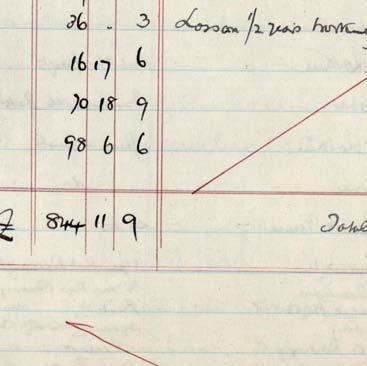 36 . 3 Loss on 1/2 years
16 17 6
70 18 9
98 6 6
£ 844 11 9